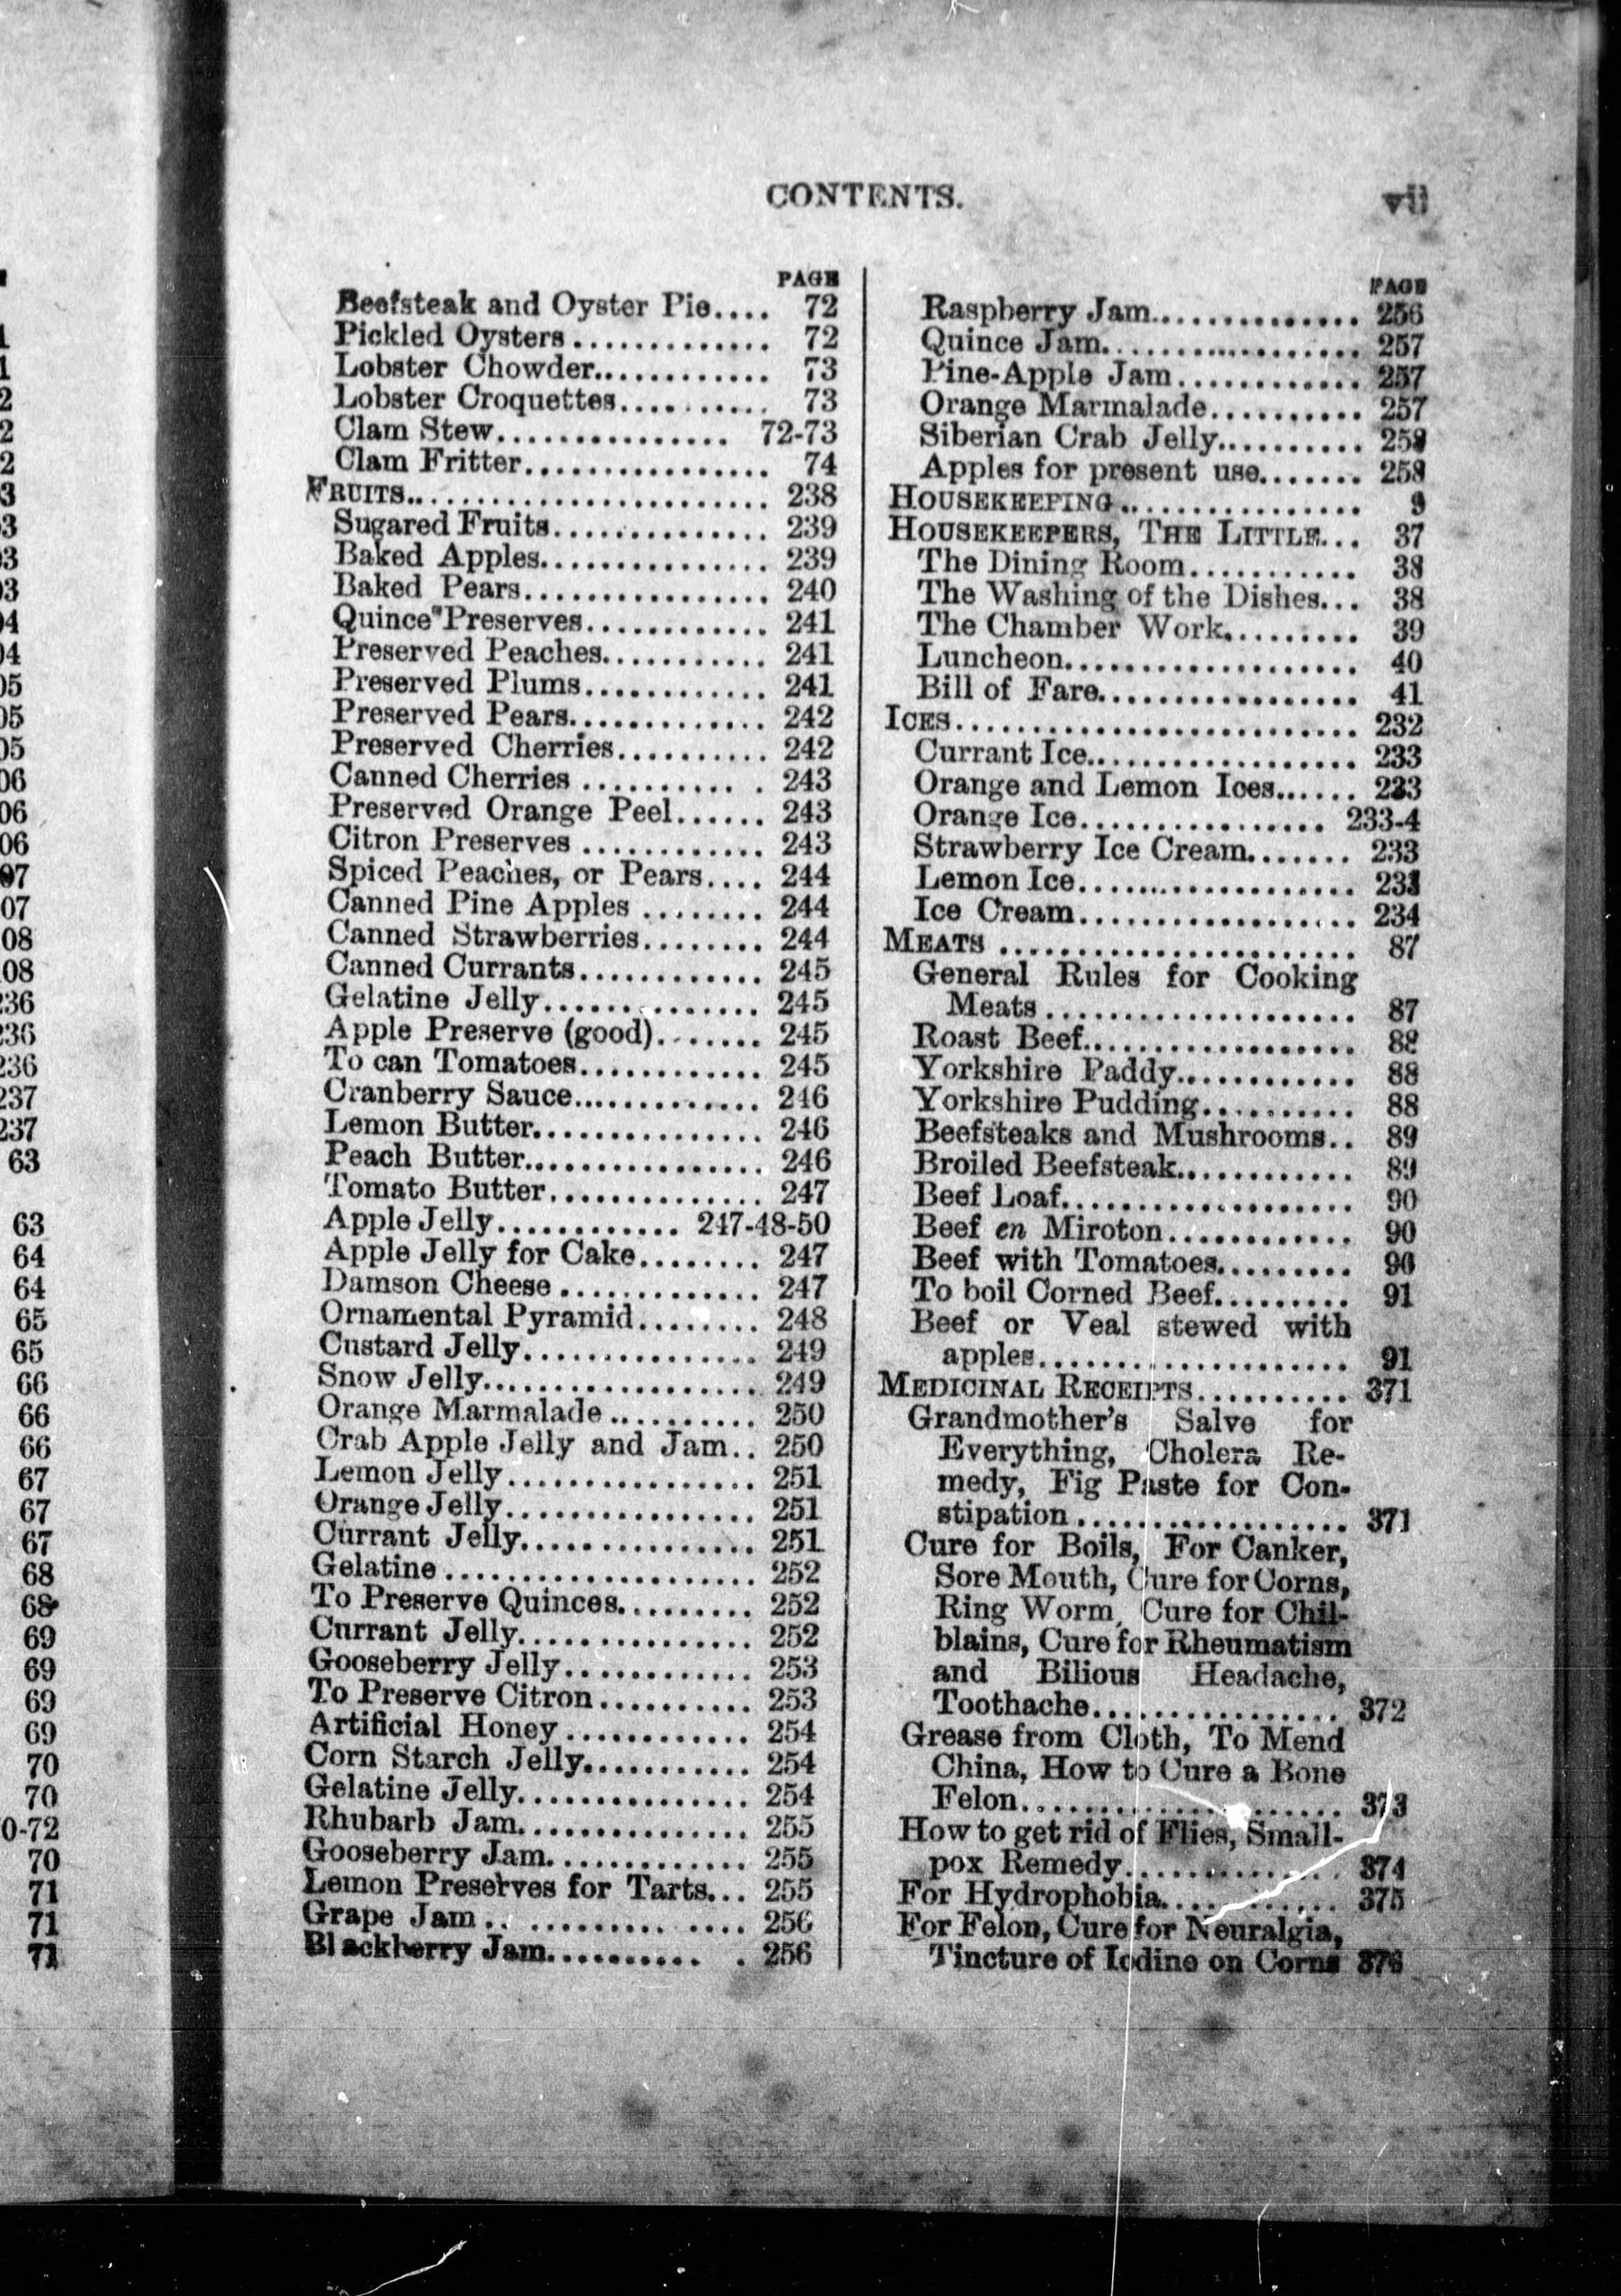 CONTENTS. vii
PAGE
Beefsteak and Oyster Pie.... 72
Pickled Oysters ............. 72
Lobster Chowder............ 73
Lobster Croquettes.......... 73
Clam Stew............... 72-73
Clam Fritter................ 74
FRUITS....................... 238
Sugared Fruits.............. 239
Baked Apples............... 239
Baked Pears................ 240
Quince Preserves............ 241
Preserved Peaches........... 241
Preserved Plums............ 241
Preserved Pears............. 242
Preserved Cherries.......... 242
Canned Cherries .......... . 243
Preserved Orange Peel...... 243
Citron Preserves ............ 243
Spiced Peaches, or Pears.... 244
Canned Pine Apples ........ 244
Canned Strawberries........ 244
Canned Currants............ 245
Gelatine Jelly.............. 245
Apple Preserve (good)....... 245
To can Tomatoes............ 245
Cranberry Sauce............ 246
Lemon Butter............... 246
Peach Butter................ 246
Tomato Butter.............. 247
Apple Jelly............ 247-48-50
Apple Jelly for Cake........ 247
Damson Cheese ............. 247
Ornamental Pyramid........ 248
Custard Jelly............... 249
Snow Jelly.................. 249
Orange Marmalade .......... 250
Crab Apple Jelly and Jam.. 250
Lemon Jelly................ 251
Orange Jelly................ 251
Currant Jelly............... 251
Gelatine .................... 252
To Preserve Quinces......... 252
Currant Jelly............... 252
Gooseberry Jelly............ 253
To Preserve Citron.......... 253
Artificial Honey ............ 254
Corn Starch Jelly........... 254
Gelatine Jelly............... 254
Rhubarb Jam............... 255
Gooseberry Jam............. 255
Lemon Preserves for Tarts... 255
Grape Jam .. ......... .... 256
Blackberry Jam.......... . 256
PAGE
Raspberry Jam.............. 256
Quince Jam................. 257
Pine-Apple Jam............ 257
Orange Marmalade.......... 257
Siberian Crab Jelly.......... 258
Apples for present use....... 258
HOUSEKEEPING................ 9
HOUSEKEEPERS, THE LITTLE... 37
The Dining Room........... 38
The Washing of the Dishes... 38
The Chamber Work......... 39
Luncheon................... 40
Bill of Fare................. 41
ICES.......................... 232
Currant Ice................. 233
Orange and Lemon Ices...... 233
Orange Ice................ 233-4
Strawberry Ice Cream....... 233
Lemon Ice..................
Ice Cream.................. 234
MEATS ....................... 87
General Rules for Cooking
Meats .................... 87
Roast Beef.................. 88
Yorkshire Paddy............ 88
Yorkshire Pudding.......... 88
Beefsteaks and Mushrooms.. 89
Broiled Beefsteak............ 89
Beef Loaf................... 90
Beef en Miroton............ 90
Beef with Tomatoes......... 90
To boil Corned Beef......... 91
Beef or Veal stewed with
apples.................... 91
MEDICINAL RECEIPTS.......... 371
Grandmother's Salve for
Everything, Cholera Re-
medy, Fig Paste for Con-
stipation .................. 371
Cure for Boils, For Canker,
Sore Mouth, Cure for Corns,
Ring Worm, Cure for Chil-
blains, Cure for Rheumatism
and Bilious Headache,
Toothache................ 372
Grease from Cloth, To Mend
China, How to Cure a Bone
Felon..................... 373
How to get rid of Flies, Small-
pox Remedy.............. 374
For Hydrophobia........... 375
For Felon, Cure for Neuralgia,
Tincture of Iodine on Corns 376
63
63
64
64
65
65
66
66
66
67
67
67
68
68
69
69
69
69
70
70
0-72
70
71
71
71